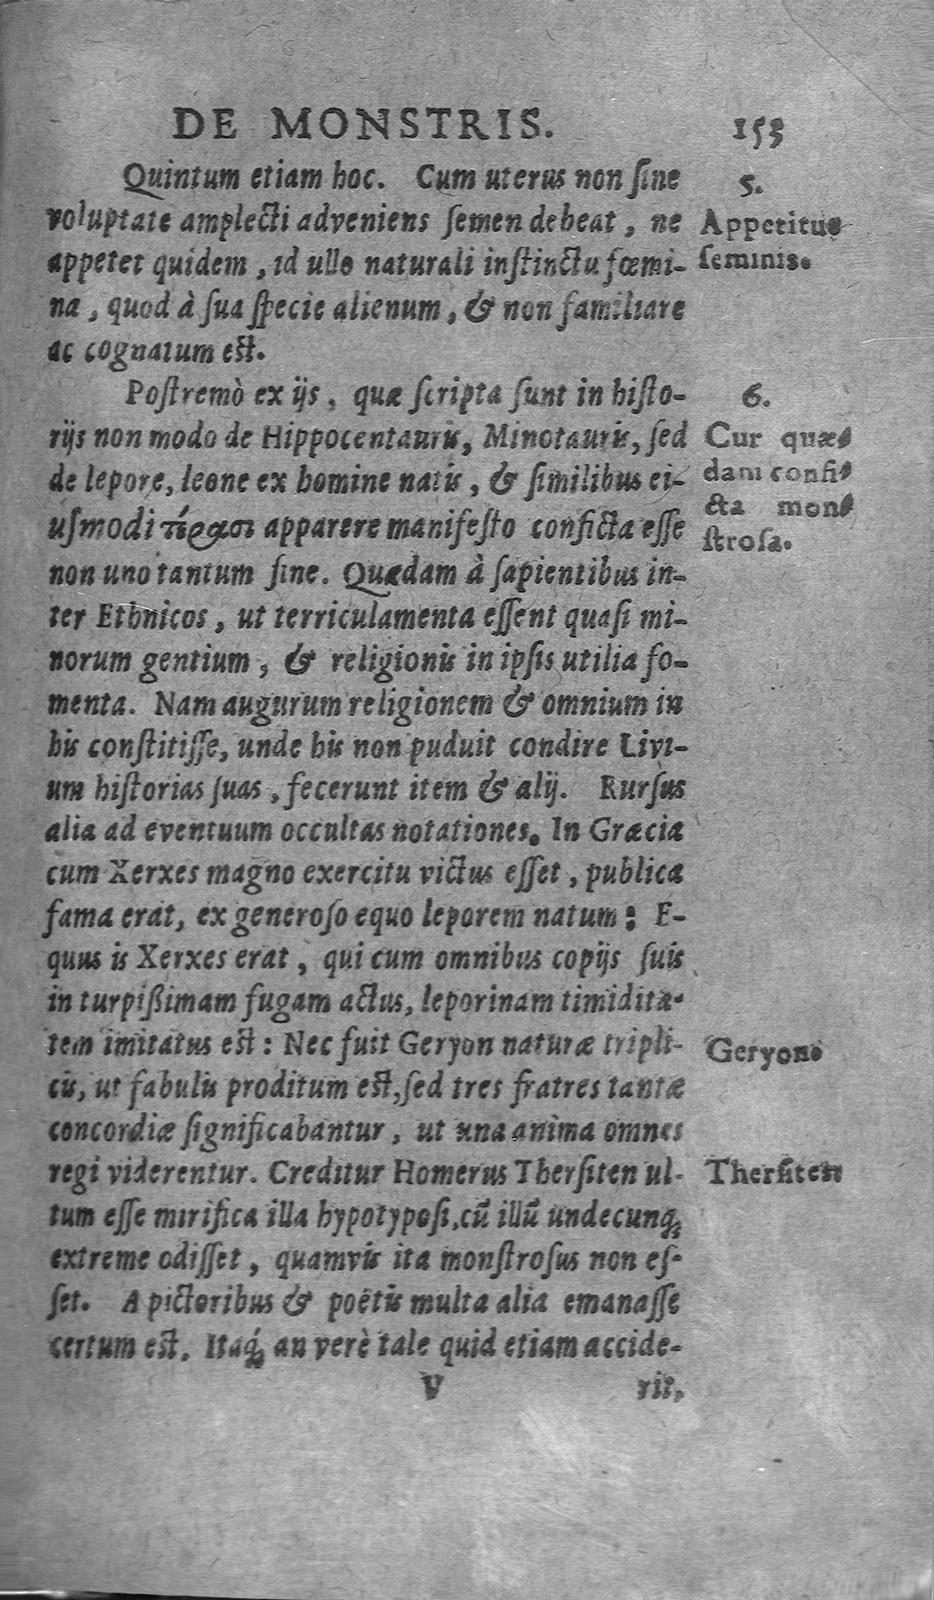 DE MONSTRIS. 153
Quintum etiam hoc. Cum uterus non ſine
voluptate amplecti adveniens ſemen debeat, ne
appetet quidem, id ullo naturali inſtinctu fœmi-
na, quod à ſua ſpecie alienum, & non familiare
ac cognatum est.
5.
Appetitus
ſeminis.
Poſtremò ex ijs, quæ ſcripta ſunt in hiſto-
rijs non modo de Hippocentauris, Minotauris, ſed
de lepore, leone ex homine natis, & ſimilibus ei-
uſmodi τέρασι apparere manifeſto conficta eſſe
non uno tantum fine. Quædam à ſapientibus in-
ter Ethnicos, ut terriculamenta eſſent quaſi mi-
norum gentium, & religionis in ipſis utilia fo-
menta. Nam augurum religionem & omnium in
his conſtitiſſe, unde his non puduit condire Livi-
um hiſtorias ſuas, fecerunt item & alij. Rurſus
alia ad eventuum occultas notationes. In Græcia
cum Xerxes magno exercitu victus eſſet, publica
fama erat, ex generoſo equo leporem natum: E-
quus is Xerxes erat, qui cum omnibus copijs ſuis
in turpißimam fugam actus, leporinam timidita-
tem imitatus est: Nec fuit Geryon naturæ tripli-
cis, ut fabulis proditum est, ſed tres fratres tantæ
concordiæ ſignificabantur, ut una anima omnes
regi viderentur. Creditur Homerus Therſiten ul-
tum eſſe mirifica illa hypotypoſi, cū illū undecunq;
extreme odiſſet, quamvis ita monſtroſus non eſ-
ſet. A pictoribus & poëtis multa alia emanaſſe
certum est. Itaq́; an verè tale quid etiam accide-
6.
Cur quæ-
dam confi-
cta mon-
ſtroſa.
Geryon.
Therſiten
V rit,